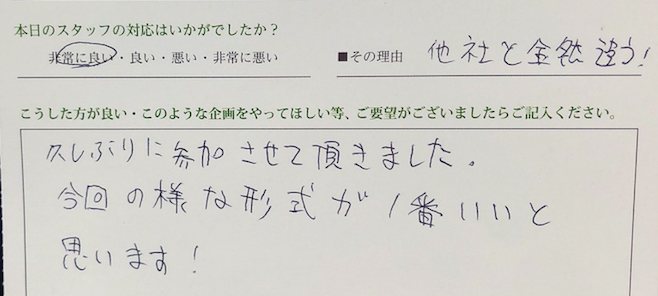 本日のスタッフの対応はいかがでしたか？
非常に良い・良い・悪い・非常に悪い
■その理由 他社と全然違う！
こうした方が良い・このような企画をやってほしい等、ご要望がございましたらご記入ください。
久しぶりに参加させて頂きました。
今回の様な形式が1番いいと
思います！